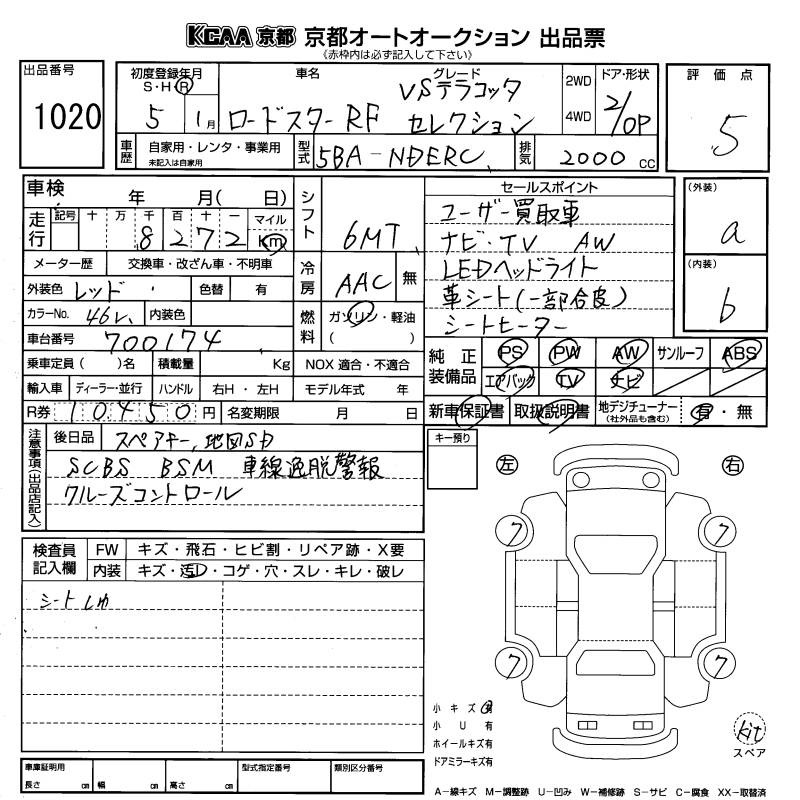 KCAA 京都 京都オートオークション 出品票
《赤枠内は必ず記入して下さい》
出品番号
1020
初度登録年月
S・H・R
5 1月
車名
ロードスターRF
グレード
VSテラコッタ
セレクション
2WD
4WD
ドア・形状
2/OP
評価点
5
車歴
自家用・レンタ・事業用
未記入は自家用
型式
5BA-NDERC
排気
2000 CC
車検 年 月( 日)
走行
記号 十 万 千 百 十 一 マイル
8 2 7 2 Km
メーター歴 交換車・改ざん車・不明車
外装色 レッド 色替 有
カラーNo. 46V 内装色
車台番号 700174
乗車定員( )名 積載量 Kg
輸入車 ディーラー・並行 ハンドル 右H・左H
R券 10450円 名変期限 月 日
シフト 6MT
冷房 AAC 無
燃料 ガソリン・軽油
( )
NOX 適合・不適合
モデル年式 年
セールスポイント
ユーザー買取車
ナビ・TV AW
LEDヘッドライト
革シート(一部合皮)
シートヒーター
(外装)
a
(内装)
b
純正装備品
PS PW AW サンルーフ ABS
エアバック TV ナビ
新車保証書 取扱説明書 地デジチューナー
(社外品も含む)
有・無
注意事項(出品店記入)
後日品 スペアキー,地図SD
SCBS BSM 車線逸脱警報
クルーズコントロール
キー預り
左 右
7 7
7 7
検査員記入欄
FW キズ・飛石・ヒビ割・リペア跡・X要
内装 キズ・汚レ・コゲ・穴・スレ・キレ・破レ
シートしわ
小キズ有
小U有
ホイールキズ有
ドアミラーキズ有
kit
スペア
車庫証明用
長さ cm 幅 cm 高さ cm
型式指定番号
類別区分番号
A−線キズ M−調整跡 U−凹み W−補修跡 S−サビ C−腐食 XX−取替済